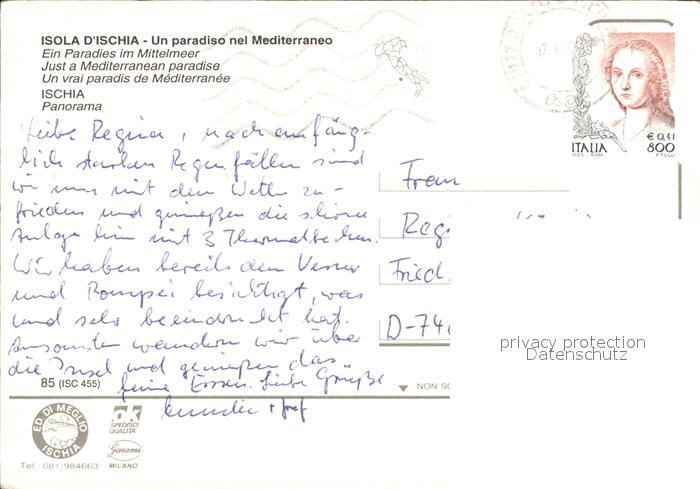 ISOLA D'ISCHIA - Un paradiso nel Mediterraneo
Ein Paradies im Mittelmeer
Just a Mediterranean paradise
Un vrai paradis de Méditerranée
ISCHIA
Panorama
Liebe Regina, nach anfäng-
lich starken Regenfällen sind
wir nun mit dem Wetter zu-
frieden und genießen die schöne
Anlage hier mit 3 Thermalbecken.
Wir haben bereits den Vesuv
und Pompei besichtigt, was
uns sehr beeindruckt hat.
Ansonsten wandern wir über
die Insel und genießen das
feine Essen. Liebe Grüße
85 (ISC 455)
ITALIA
€ 0,41
800
Frau
Regi
Fried
D-74
privacy protection
Datenschutz
NON SC
ED. DI MEGLIO
ISCHIA
ok
SPEDISCI
QUALITA'
Garami
MILANO
Tel. 081/984663